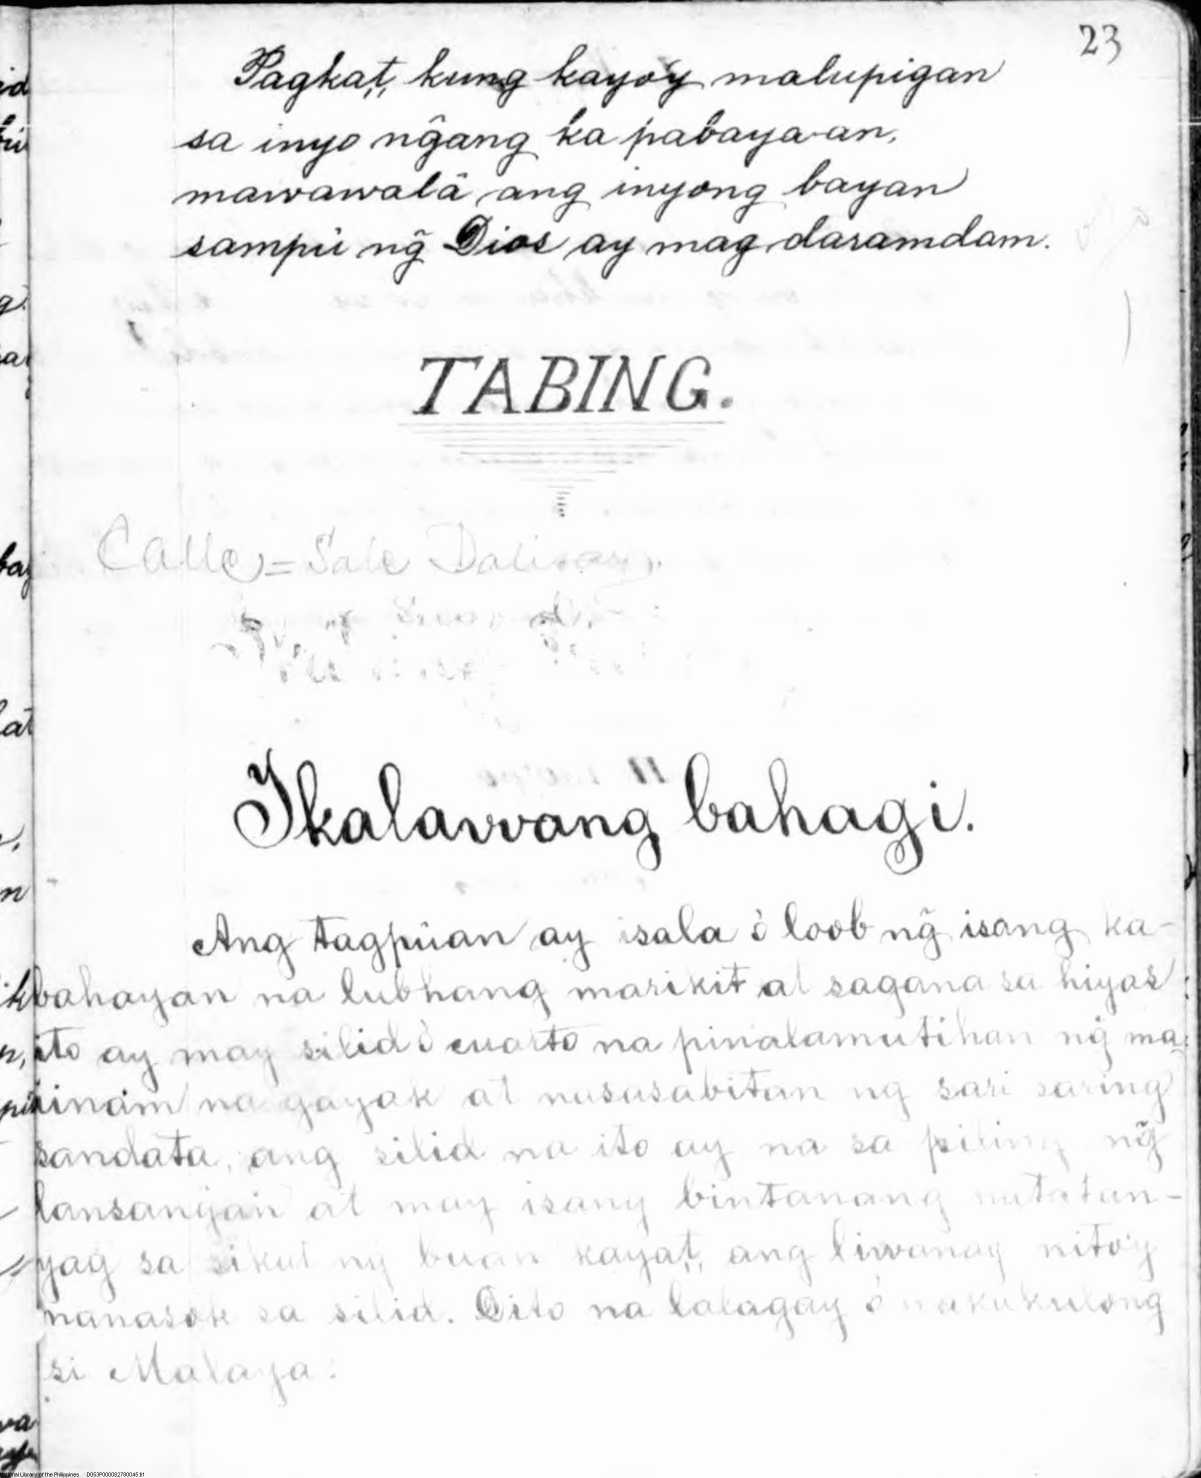 23
Pagkat, kung kayo'y malupigan
sa inyo ng̃ang ka pabaya-an,
mawawalâ ang inyong bayan
sampû ng̃ Dios ay mag daramdam.
TABING.
Calle = Sale Dalisay.
Ikalawang bahagi.
Ang tagpûan ay isala ó loob ng̃ isang ka-
bahayan na lubhang marikit at sagana sa hiyas
ito ay may silid ó cuarto na pinalamutihan ng̃ ma-
inam na gayak at nasasabitan ng sari saring
sandata, ang silid na ito ay na sa piling ng̃
lansangan at may isang bintanang natatan-
yag sa sikat ng buan kayat, ang liwanag nito'y
nanasok sa silid. Dito na lalagay ó nakukulong
si Malaya.
National Library of the Philippines